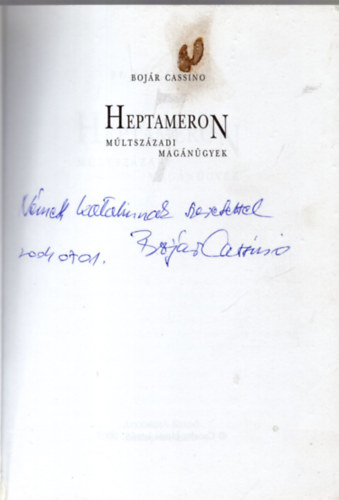 BOJÁR CASSINO
HEPTAMERON
MÚLTSZÁZADI
MAGÁNÜGYEK
Német Katalinnak szeretettel
2004 07 01. Bojár Cassino